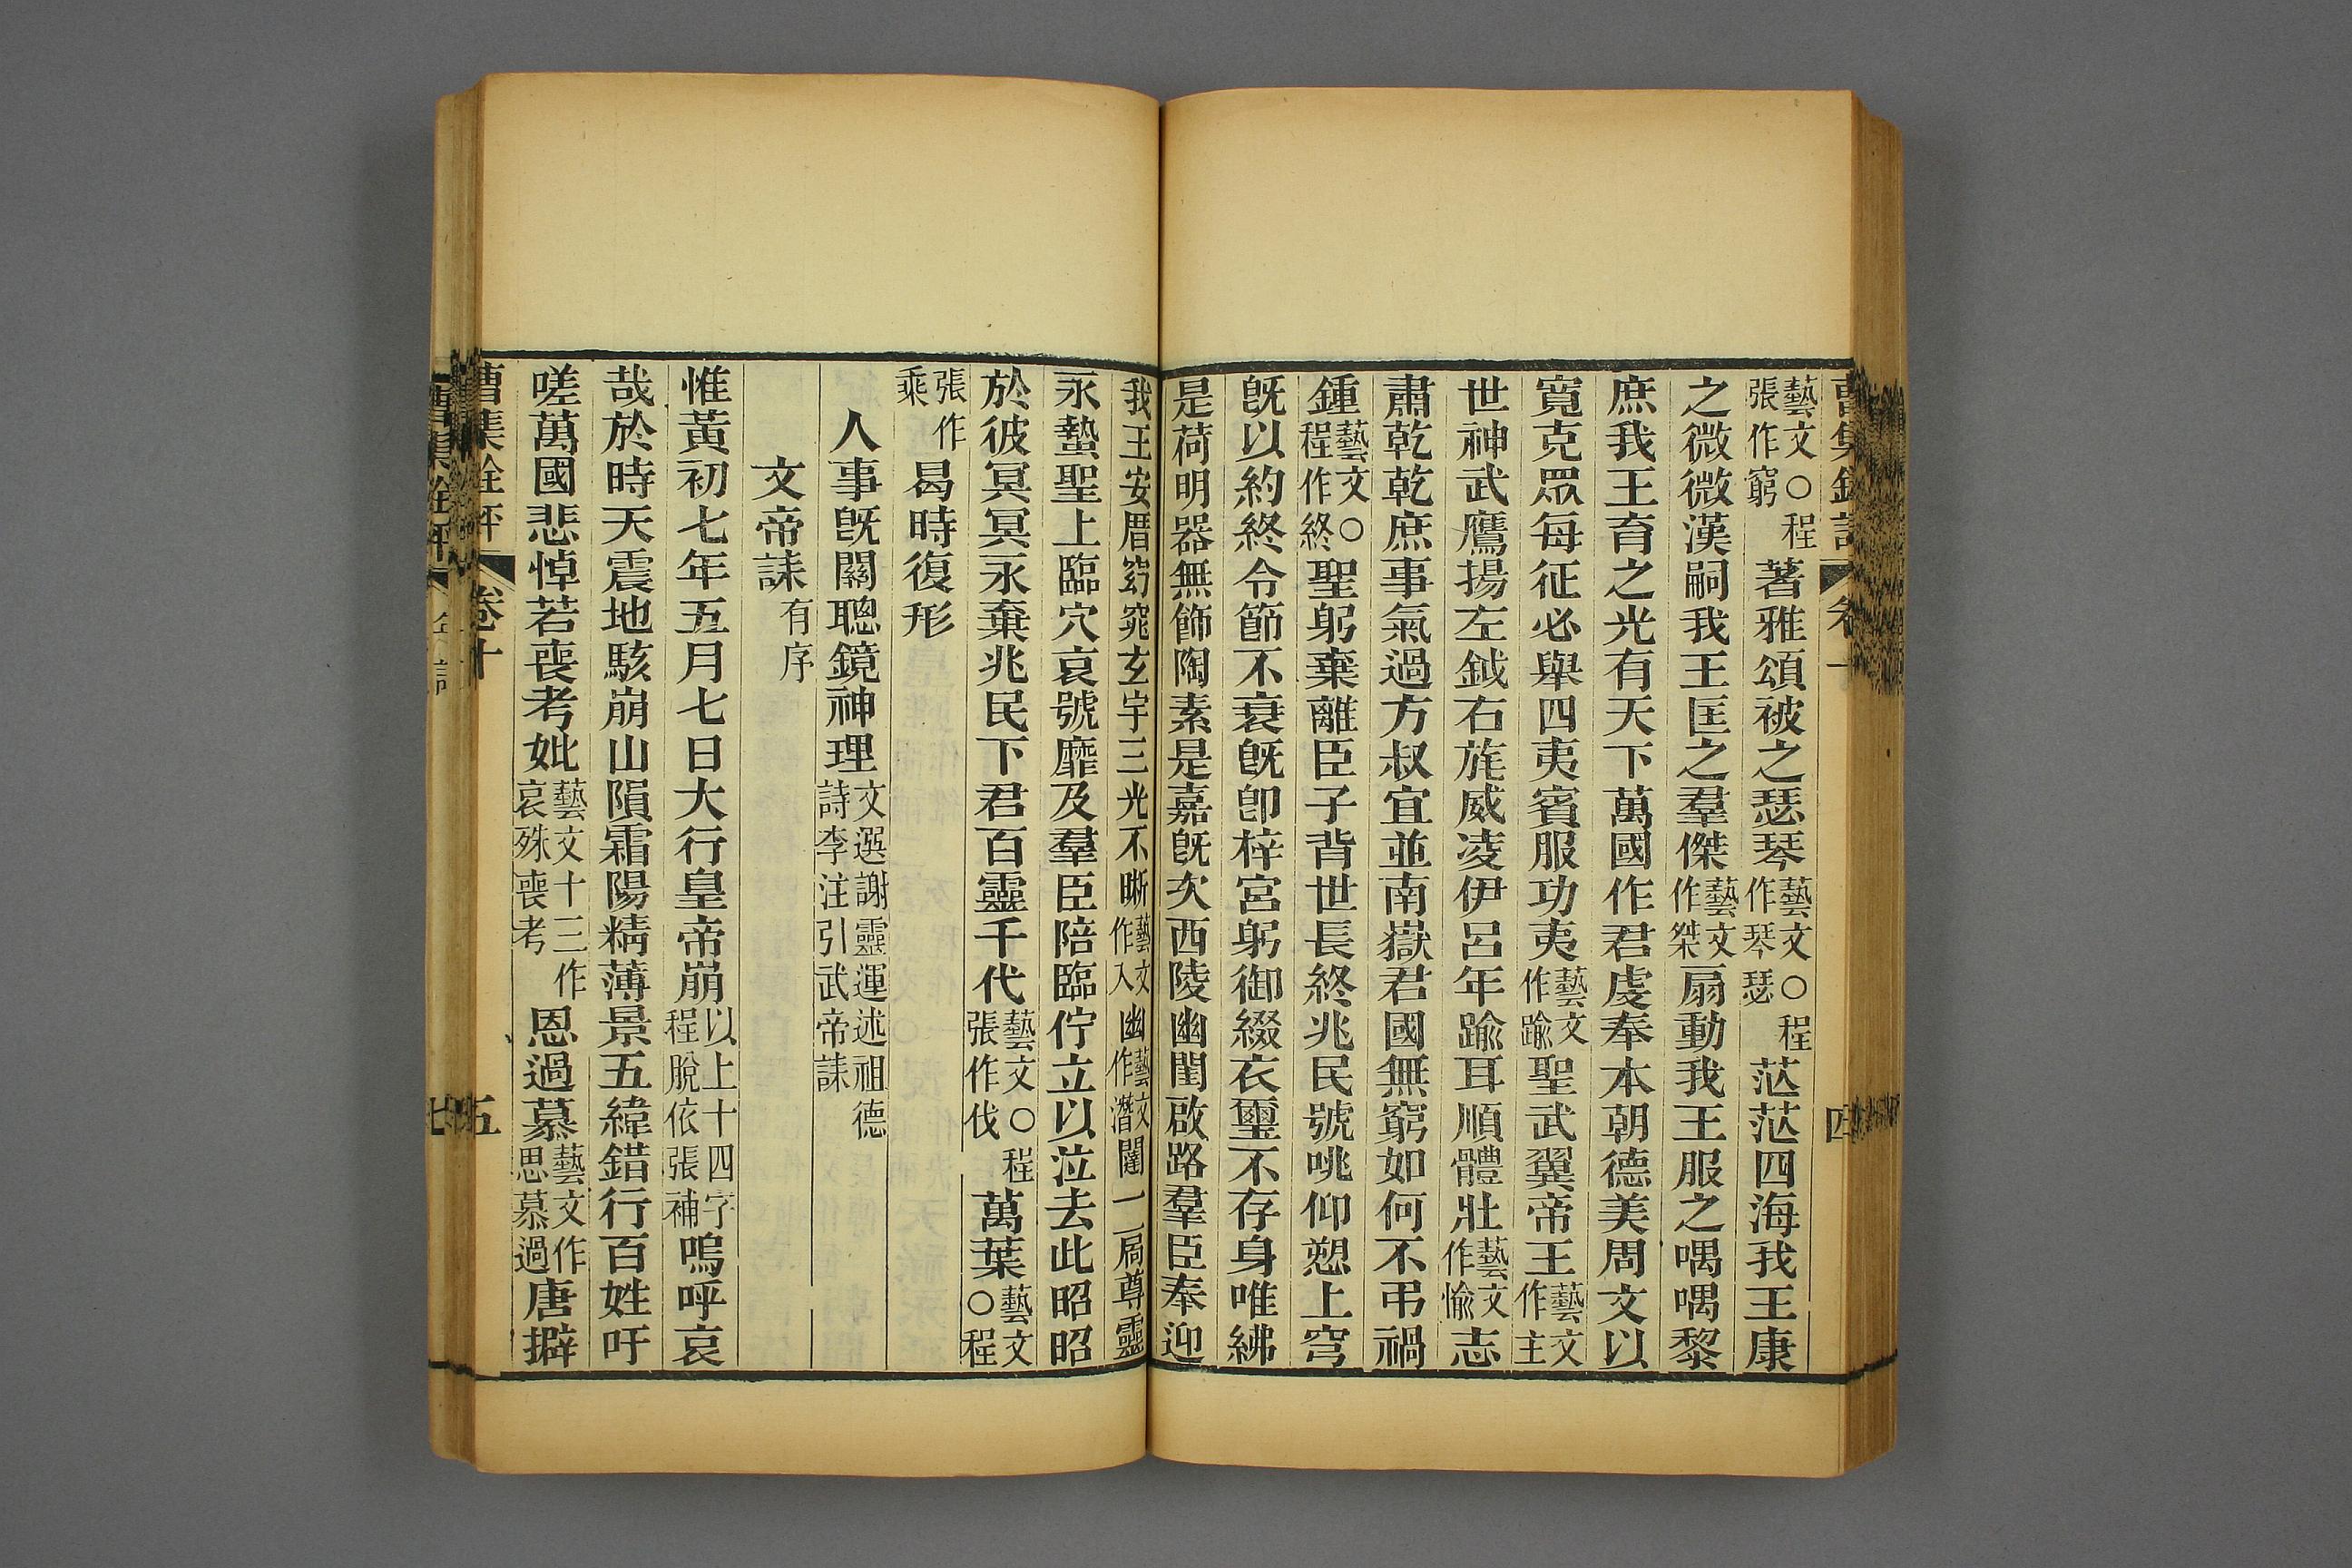 藝文○程張作窮著雅頌被之瑟琴藝文○程作琴瑟茫茫四海我王康
之微微漢嗣我王匡之羣傑藝文作桀扇動我王服之喁喁黎
庶我王育之光有天下萬國作君虔奉本朝德美周文以
寬克眾每征必舉四夷賓服功夷藝文作踰聖武翼帝王藝文作主
世神武鷹揚左鉞右旄威凌伊呂年踰耳順體壯藝文作愉志
肅乾乾庶事氣過方叔宜並南嶽君國無窮如何不弔禍
鍾藝文○程作終聖躬棄離臣子背世長終兆民號咷仰愬上穹
既以約終令節不衰既卽梓宮躬御綴衣璽不存身唯紼
是荷明器無飾陶素是嘉既次西陵幽閨啟路羣臣奉迎
我王安厝窈窕玄宇三光不晰藝文作入幽藝文作潛闥一扃尊靈
永蟄聖上臨穴哀號靡及羣臣陪臨佇立以泣去此昭昭
於彼冥冥永棄兆民下君百靈千代藝文○程張作伐萬葉藝文○程
張作乘曷時復形
人事既關聰鏡神理文選謝靈運述祖德詩李注引武帝誄
文帝誄有序
惟黃初七年五月七日大行皇帝崩以上十四字程脫依張補嗚呼哀
哉於時天震地駭崩山隕霜陽精薄景五緯錯行百姓吁
嗟萬國悲悼若喪考妣藝文十三作哀殊喪考恩過慕藝文作思慕過唐擗
曹集銓評
卷十
五